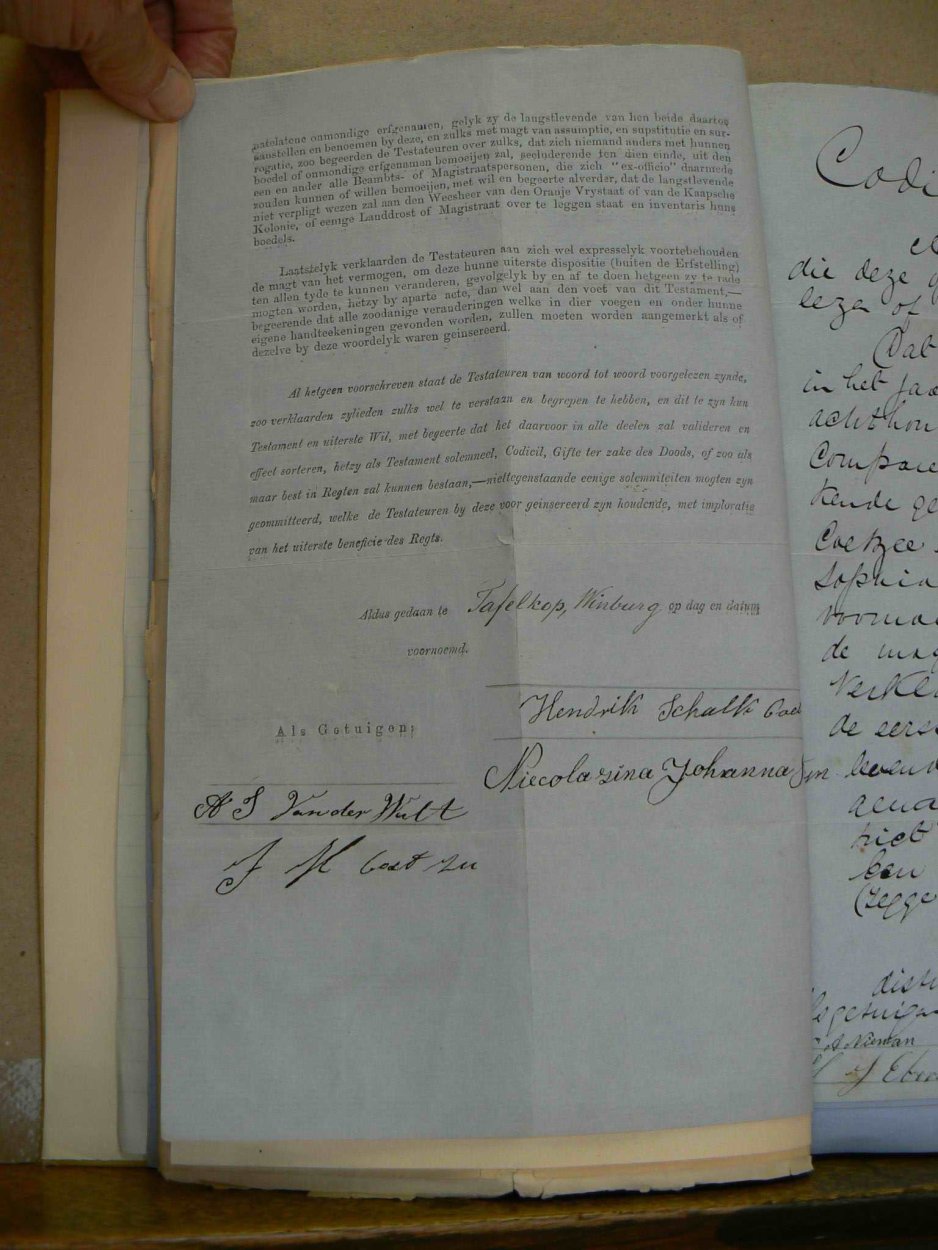 natelatene onmondige erfgenamen, gelyk zy de langstlevende van hen beide daartoe
aanstellen en benoemen by deze, en zulks met magt van assumptie, en supstitutie en sur-
rogatie, zoo begeerden de Testateuren over zulks, dat zich niemand anders met hunnen
boedel of onmondige erfgenamen bemoeijen zal, secluderende ten dien einde, uit den
een en ander alle Beambts- of Magistraatspersonen, die zich "ex-officio" daarmede
zouden kunnen of willen bemoeijen, met wil en begeerte alverder, dat de langstlevende
niet verpligt wezen zal aan den Weesheer van den Oranje Vrystaat of van de Kaapsche
Kolonie, of eenige Landdrost of Magistraat over te leggen staat en inventaris huns
boedels.
Laatstelyk verklaarden de Testateuren aan zich wel expresselyk voortebehouden
de magt van het vermogen, om deze hunne uiterste dispositie (buiten de Erfstelling)
ten allen tyde te kunnen veranderen, gevolgelyk by en af te doen hetgeen zy te rade
mogten worden, hetzy by aparte acte, dan wel aan den voet van dit Testament,—
begeerende dat alle zoodanige veranderingen welke in dier voegen en onder hunne
eigene handteekeningen gevonden worden, zullen moeten worden aangemerkt als of
dezelve by deze woordelyk waren geinsereerd.
Al hetgeen voorschreven staat de Testateuren van woord tot woord voorgelezen zynde,
zoo verklaarden zylieden zulks wel te verstaan en begrepen te hebben, en dit te zyn hun
Testament en uiterste Wil, met begeerte dat het daarvoor in alle deelen zal valideren en
effect sorteren, hetzy als Testament solemneel, Codicil, Gifte ter zake des Doods, of zoo als
maar best in Regten zal kunnen bestaan,—niettegenstaande eenige solemniteiten mogten zyn
geommitteerd, welke de Testateuren by deze voor geinsereerd zyn houdende, met imploratie
van het uiterste beneficie des Regts.
Aldus gedaan te Tafelkop, Winburg, op dag en datum
voornoemd.
Hendrik Schalk Coe
Als Getuigen;
Niecolazina Johanna
A S Van der Walt
J H
Codi
die deze
lezen of
Dat
in het jaa
achthon
Compare
kende ge
Coetzee
Sophia
voorna
de mag
Verkl
de eers
levend
aena
niet
een
(zegge
distr
getuige
Nieman